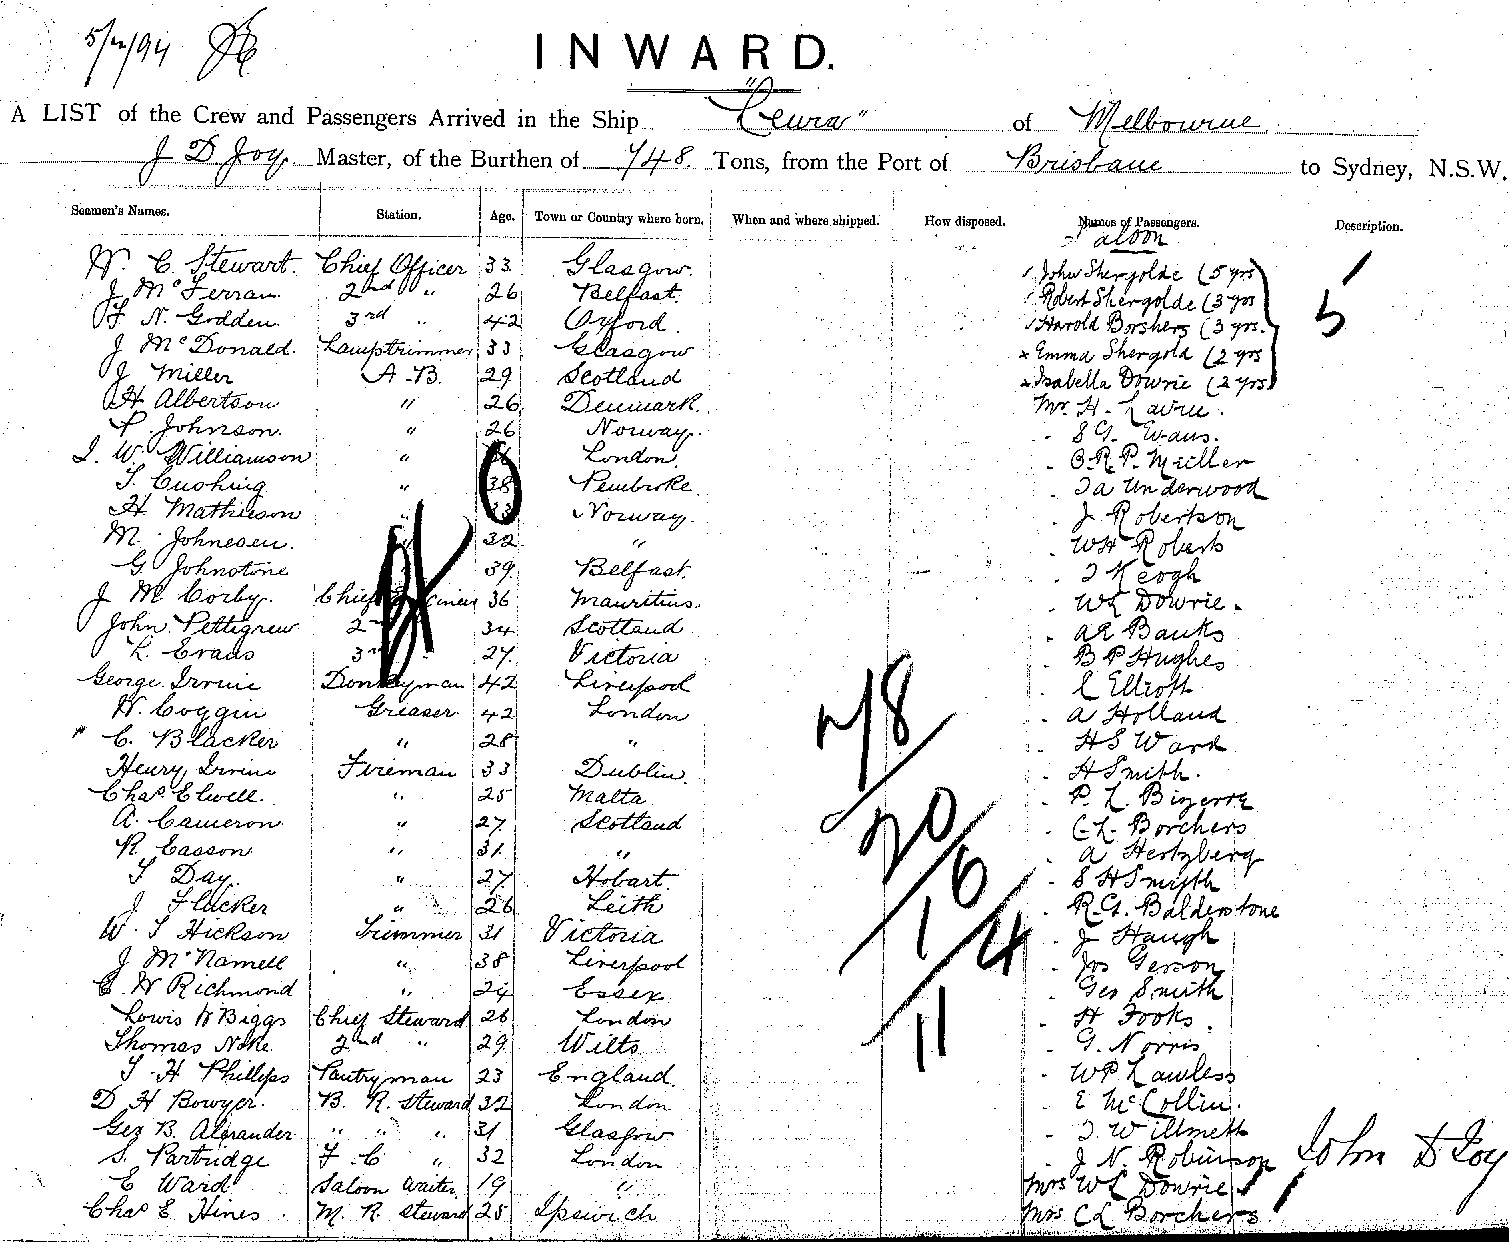 5/11/94
INWARD.
A LIST of the Crew and Passengers Arrived in the Ship "Leura" of Melbourne
J D Joy. Master, of the Burthen of 748. Tons, from the Port of Brisbane to Sydney, N.S.W.
Seamen's Names. Station. Age. Town or Country where born. When and where shipped. How disposed. Names of Passengers. Description.
Saloon
W. C. Stewart. Chief Officer 33 Glasgow. John Shergolde (5 yrs
J McFerran 2nd " 26 Belfast. Robert Shergolde (3 yrs 5
F N. Godden 3rd " 42 Oxford. Harold Borshers (3 yrs.
J McDonald. Lamptrimmer 33 Glasgow Emma Shergold (2 yrs
J Miller A.B. 29 Scotland Isabella Dowrie (2 yrs
H Albertson " 26 Denmark. Mr. H.
P Johnson. " 26 Norway. - S G. Evans.
J. W. Williamson " London. - O.R.P. Müller
T. Cushing " 38 Pembroke - Underwood
H Mathieson " 33 Norway. - J Robertson
M. Johnesen. " 32 " - WH Roberts
G Johnstone 39 Belfast. - J Keogh
J M Corby. Chief 36 Mauritius. - WL Dowrie.
John Pettigrew 2nd 34 Scotland - AE Banks
L. Evans 3rd 27. Victoria - B P Hughes
George Irvine Donkeyman 42 Liverpool - C Elliott
W. Coggin Greaser 42 London - A Holland
C. Blacker " 28 " - HS Ward
Henry Irvine Fireman 33 Dublin. - H Smith.
Chas Elwell. " 25 Malta - P. L. Bizerra
A. Cameron " 27 Scotland - C.L. Borchers
R. Casson " 31. " - A Hertzberg
T Day. " 27 Hobart. - S H Smyth
J Flicker " 26 Leith - R.G. Balderstone
W. T Hickson Trimmer 31 Victoria - J Haugh
J McNamell " 38 Liverpool - Jos Gerson
C. W Richmond " 24 Essex - Geo Smith
Lowis W Biggs Chief Steward 26 London - H Fooks.
Thomas Noke 2nd " 29 Wilts - G. Norris
T. H Phillips Pantryman 23 England. - WP Lawless
D H Bowyer. B. R. Steward 32 London - E McCollin.
Geo B. Alexander " " " 31 Glasgow - J. Willmett
S. Partridge F C " 32 London - J N. Robinson
E Ward Saloon Waiter 19 " Mrs WL Dowrie
Chas E Hines M. R. Steward 25 Ipswich Mrs CL Borchers
78
20
16
4
11
John D Joy